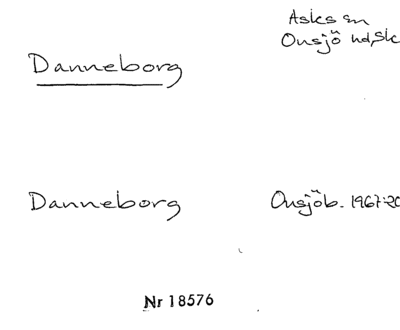 Asks sn
Onsjö hd, Sk
Danneborg
Danneborg Onsjöb. 1967:20
Nr 18576